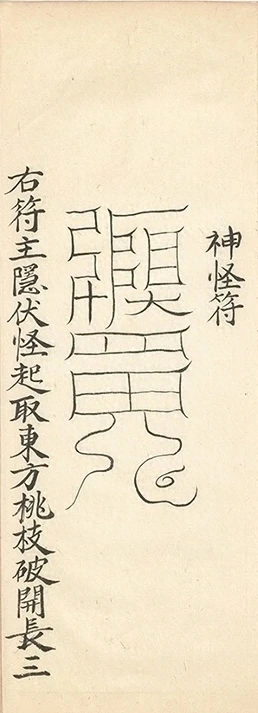 神怪符
右符主隱伏怪起取東方桃枝破開長三